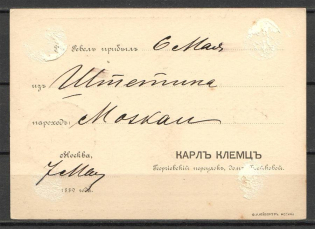 Ревель прибылъ 6 Мая
изъ Штетина
пароходъ Москаи
Москва,
7 Мая
1890 года.
КАРЛЪ КЛЕМЦЪ
переулокъ, домъ